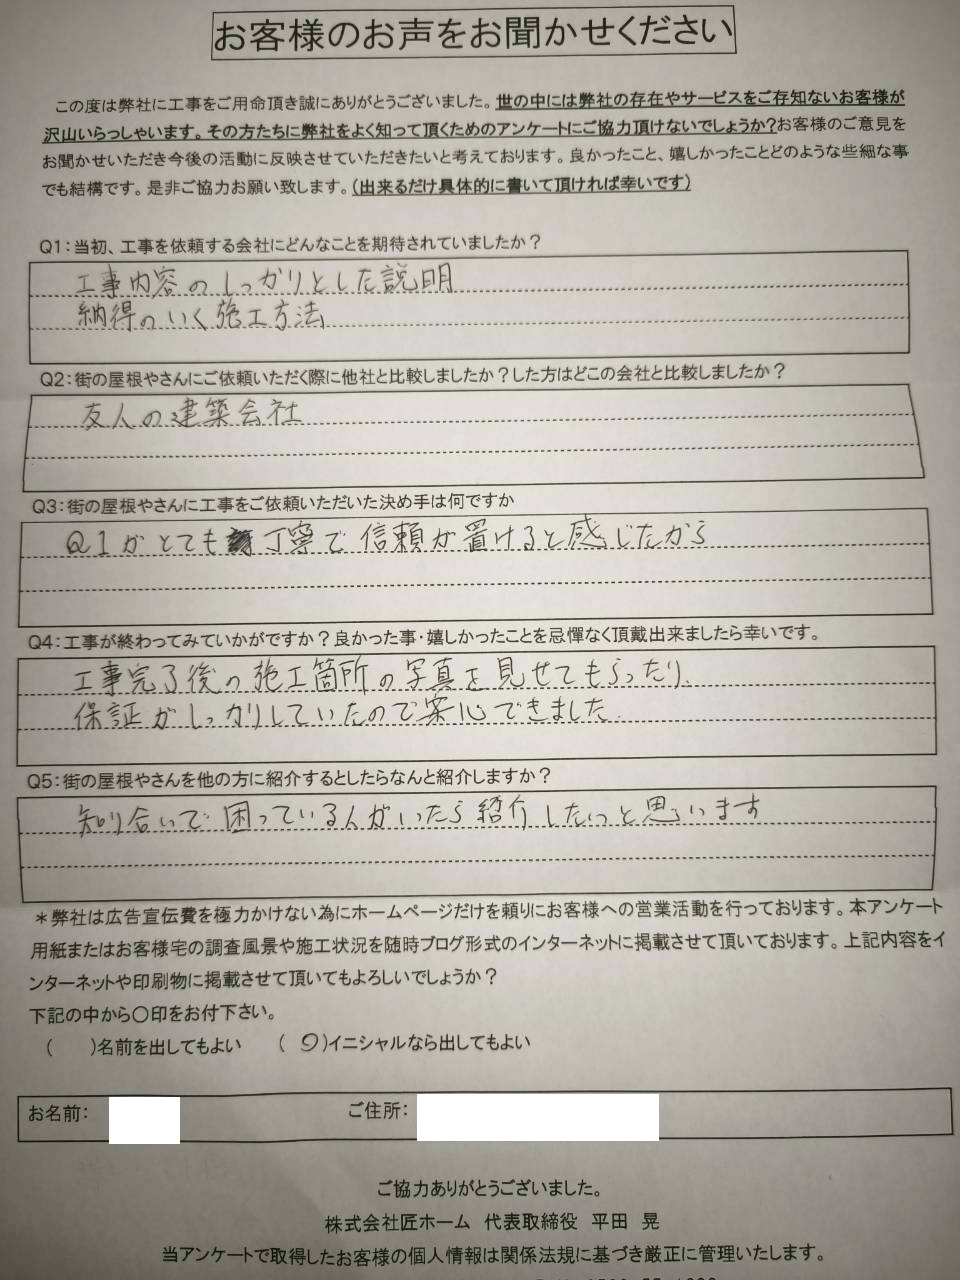 お客様のお声をお聞かせください
この度は弊社に工事をご用命頂き誠にありがとうございました。世の中には弊社の存在やサービスをご存知ないお客様が
沢山いらっしゃいます。その方たちに弊社をよく知って頂くためのアンケートにご協力頂けないでしょうか?お客様のご意見を
お聞かせいただき今後の活動に反映させていただきたいと考えております。良かったこと、嬉しかったことどのような些細な事
でも結構です。是非ご協力お願い致します。(出来るだけ具体的に書いて頂ければ幸いです)
Q1:当初、工事を依頼する会社にどんなことを期待されていましたか?
工事内容のしっかりとした説明
納得のいく施工方法
Q2:街の屋根やさんにご依頼いただく際に他社と比較しましたか?した方はどこの会社と比較しましたか?
友人の建築会社
Q3:街の屋根やさんに工事をご依頼いただいた決め手は何ですか
Q1がとても丁寧で信頼が置けると感じたから
Q4:工事が終わってみていかがですか?良かった事・嬉しかったことを忌憚なく頂戴出来ましたら幸いです。
工事完了後の施工箇所の写真を見せてもらったり、
保証がしっかりしていたので安心できました。
Q5:街の屋根やさんを他の方に紹介するとしたらなんと紹介しますか?
知り合いで困っている人がいたら紹介したいと思います
*弊社は広告宣伝費を極力かけない為にホームページだけを頼りにお客様への営業活動を行っております。本アンケート
用紙またはお客様宅の調査風景や施工状況を随時ブログ形式のインターネットに掲載させて頂いております。上記内容をイ
ンターネットや印刷物に掲載させて頂いてもよろしいでしょうか?
下記の中から○印をお付下さい。
( )名前を出してもよい (○)イニシャルなら出してもよい
お名前: ご住所:
ご協力ありがとうございました。
株式会社匠ホーム 代表取締役 平田 晃
当アンケートで取得したお客様の個人情報は関係法規に基づき厳正に管理いたします。